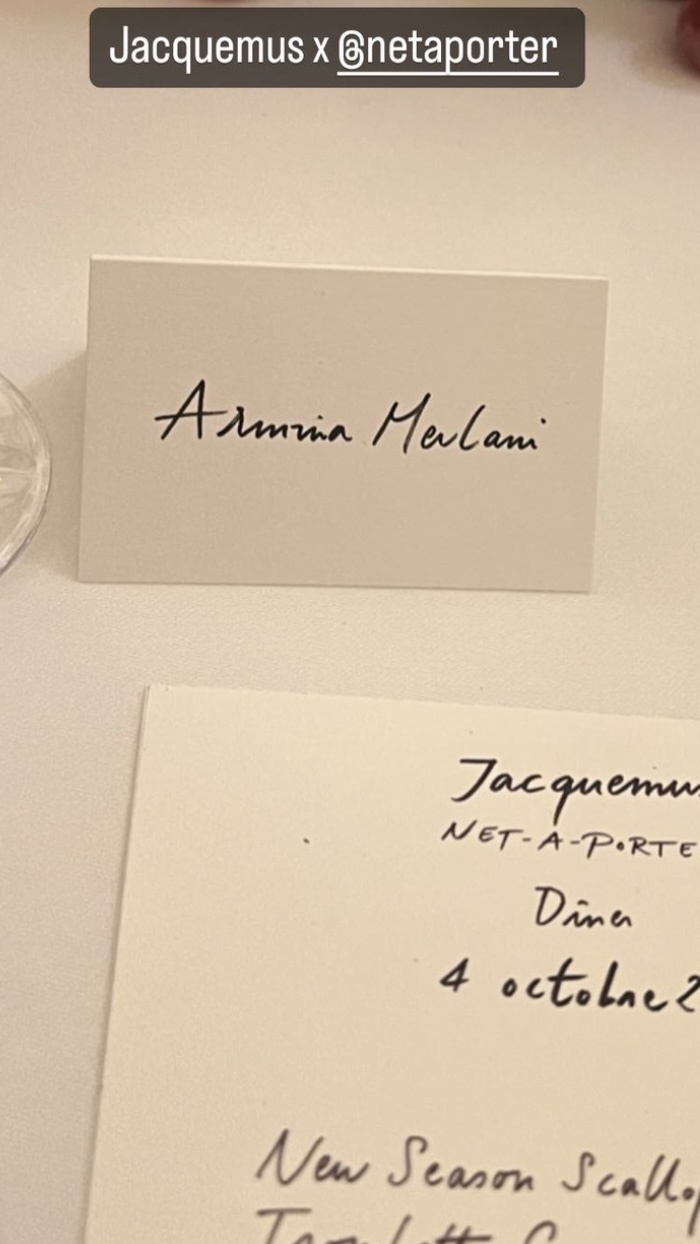 Jacquemus x @netaporter
Armina Mevlani
Jacquemu
NET-A-PORTE
Dîner
4 octobre 2
New Season Scallo